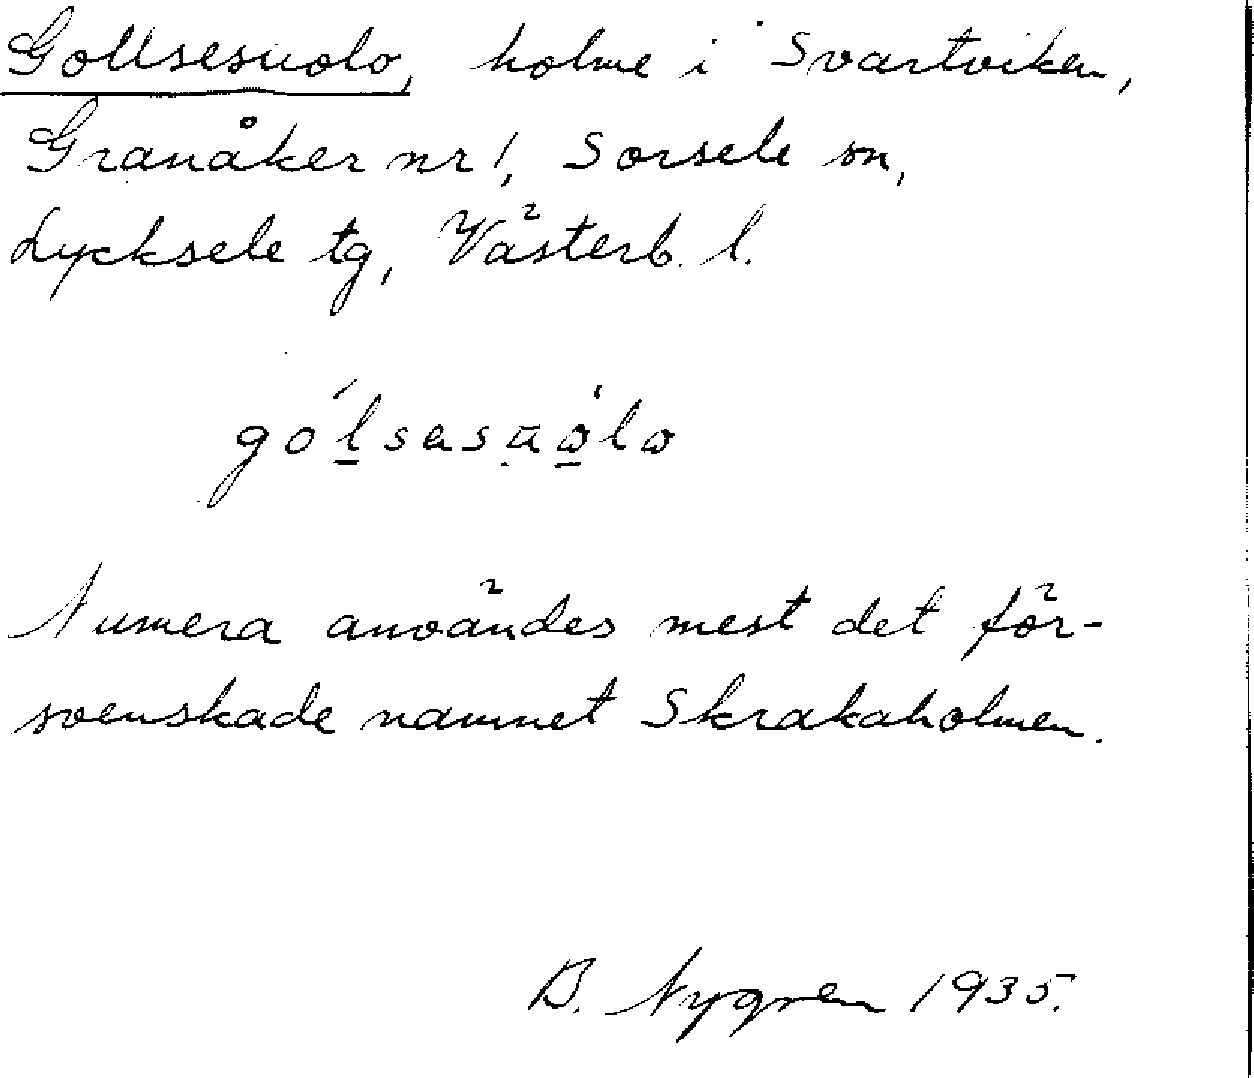 Gollsesuolo, holme i Svartviken,
Granåker nr 1, Sorsele sn,
Lycksele tg, Västerb. l.
gó́l̲sesu̯ò̲lo
Numera användes mest det för-
svenskade namnet Skrakaholmen.
B. Nygren 1935.